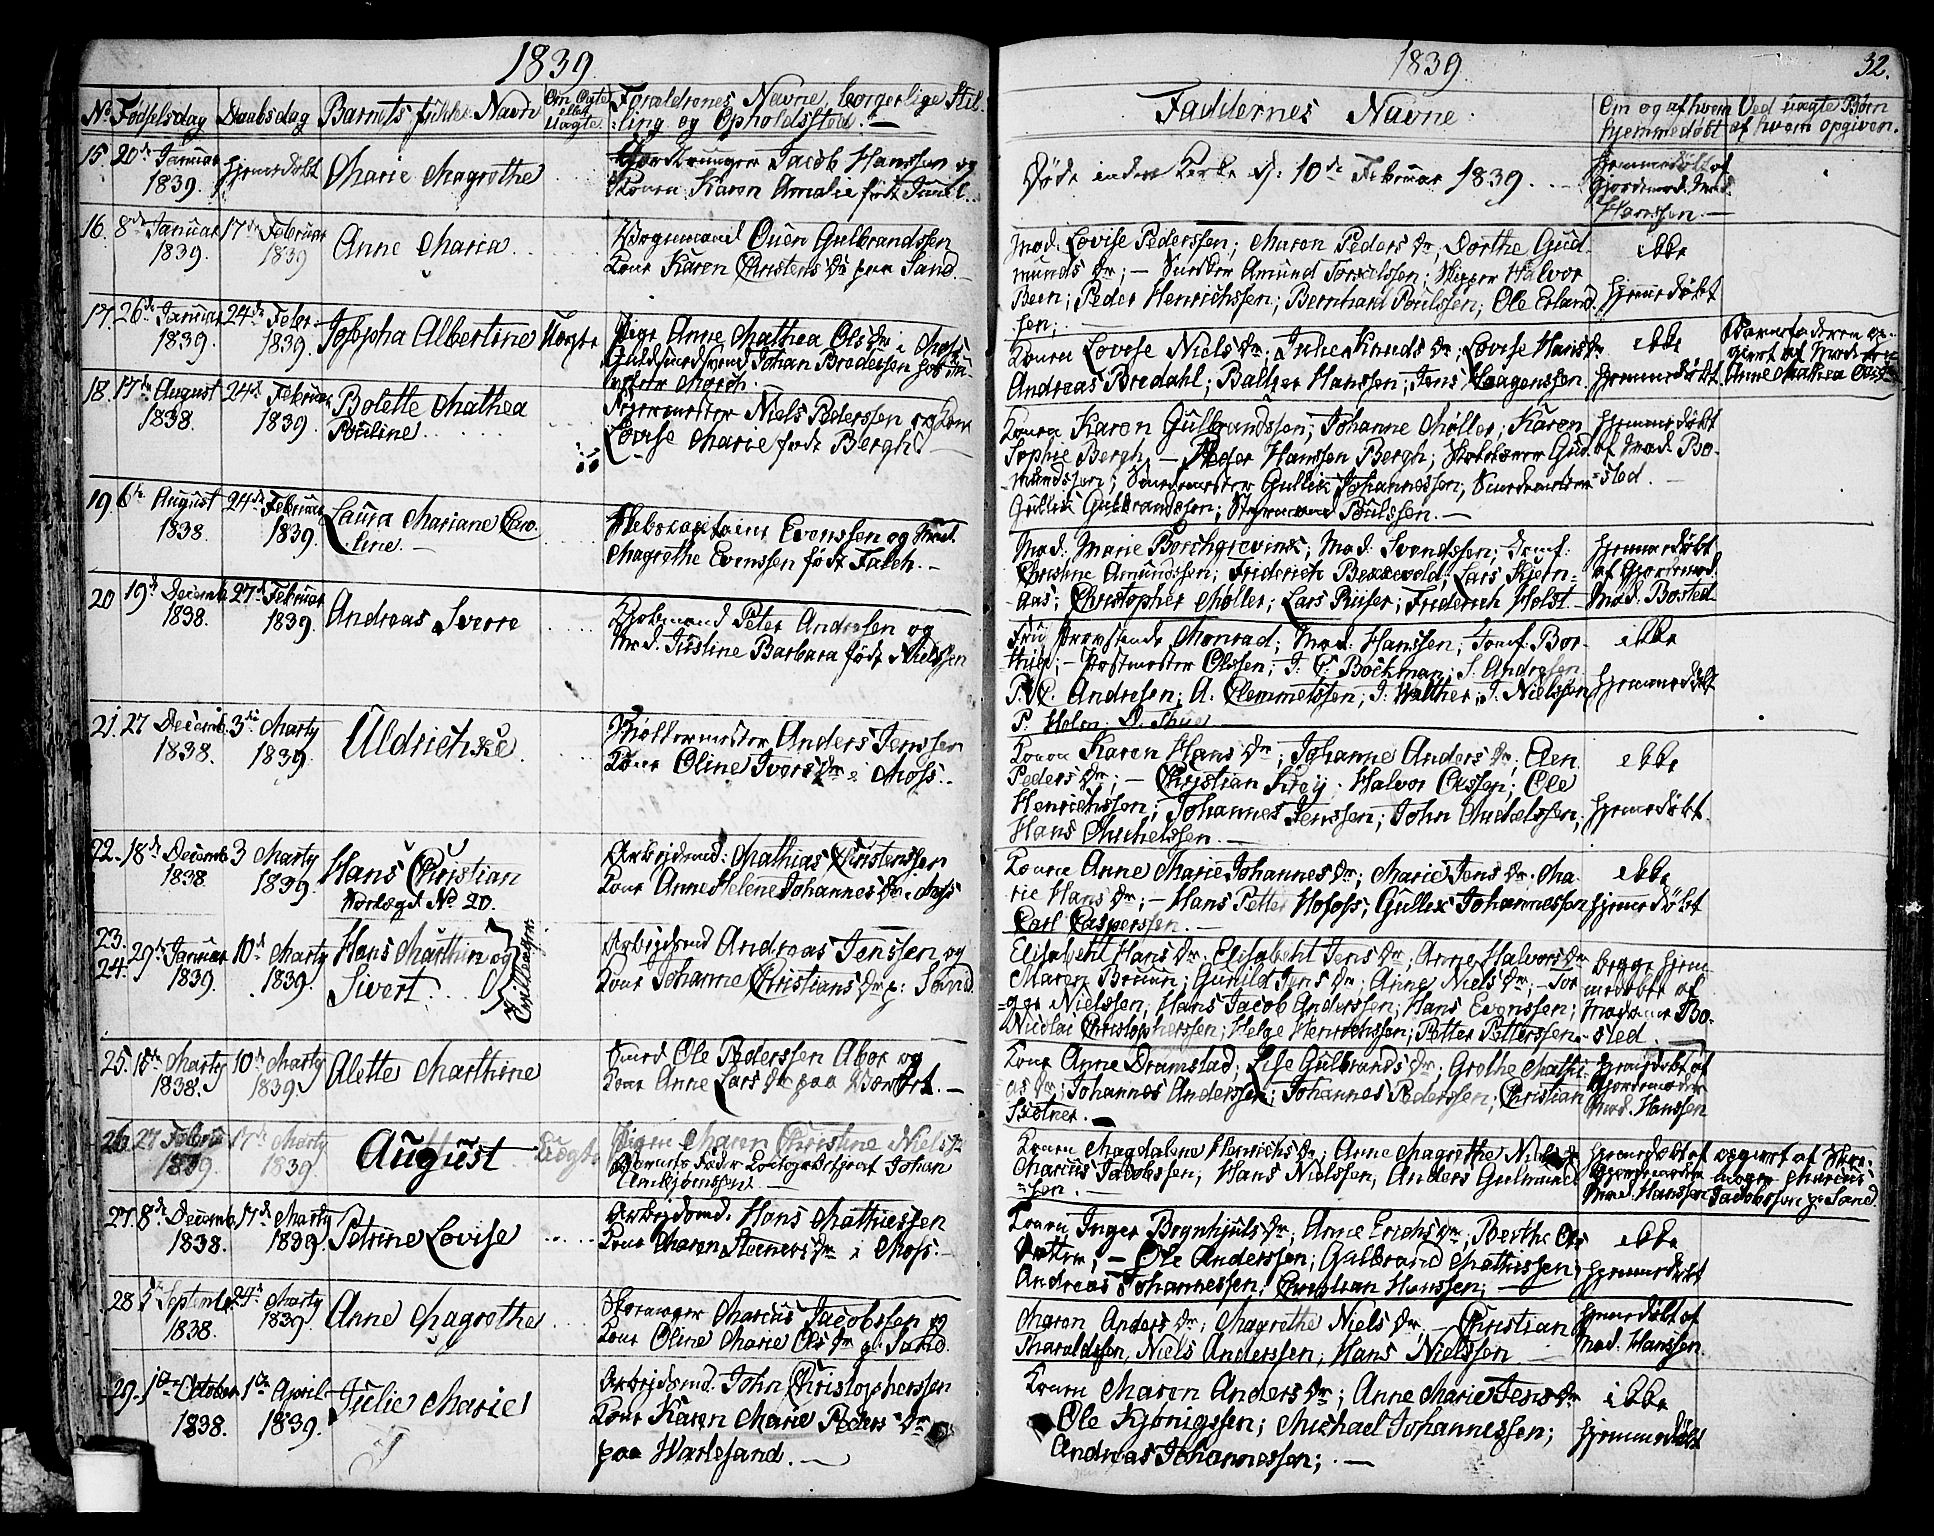 1839
No Fødselsdag Daabsdag Barnets fulde Navn Om Ægte eller Uægte Forældrenes Navne, borgerlige Stil-
ling og Opholdssted. —
15. 20de Januar 1839. hjemedøbt Marie Magrethe
Jacob Hanssen og
Konen Karen Amalie født
16. 8de Januar 1839. 17de Februar 1839 Anne Maria
Vognmand Ouen Gulbrandssen
Kone Karen Christens Dr paa Sand.
17. 26de Januar 1839. 24de Febr. 1839. Josepha Albertine Uægte
Pige Anne Mathea Ols Dr i Moss
Guldsmedsvend Johan Bredesen hos
Morch.
18. 17de August 1838. 24de Februar 1839. Bolette Mathea
Pouline
Niels Pederssen og Kone
Lovise Marie født Bergh.
19 6te August 1838. 24de Februar 1839. Laura Mariane Caro-
line. —
Skibscapitain Evenssen og Mad.
Magrethe Evenssen født Falch. —
20 19de Decemb. 1838. 27de Februar 1839. Andreas Sverre
Kjøbmand Peter Andresen og
Mad. Justine Barbara født Nielssen
21. 27 Decemb. 1838. 3die Marty 1839. Uldrichke
Møllermester Anders Jenssen
Kone Oline Ivers Dr i Moss.
22. 18de Decemb. 1838. 3 Marty 1839. Hans Christian
Forlægd No 20.
Arbejdsmd: Mathias Christenssen
Kone Anne Helene Johannes Dr i Moss
23.
24. 29de Januar 1839. 10de Marty 1839. Hans Marthin og
Sivert Tvillinger.
Arbejdsmd Andreas Jenssen og
Kone Johanne Christians Dr p: Sand
25. 10de Marty 1838. 10de Marty 1839. Alette Marthine
Smed Ole Pederssen Abor og
Kone Anne Lars Dr paa
26. 27 Febru 1839. 17de Marty 1839. August Uægte
Pigen Maren Christine Niels Dr
Barnets Fader Johan
27. 8de Decemb. 1838. 17de Marty 1839 Petrine Lovise
Arbejdsmd. Hans Mathiessen
Kone Maren Steners Dr i Moss.
28. 5te Septembr 1838. 24de Marty 1839. Anne Magrethe
Skomager Marcus Jacobssen og
Kone Oline Marie Ols Dr p: Sand.
29. 1ste October 1838. 1ste April 1839. Julie Marie
Arbejdsmd. John Christopherssen
Kone Karen Marie Peders Dr
paa Warlesand. —
1839
32.
Faddernes Navne.
Om og af hvem
hjemmedøbt
Ved uægte Børn
af hvem opgiven.
Døde inden Kirke d: 10de Februar 1839.
Hjemmedøbt af
Gjordemod. Mad.
Hanssen. —
Mad: Lovise Pederssen; Maren Peders Dr, Dorthe Gud-
munds Dr; — Snedker Amund Torkilssen; Skipper Halvor
Been; Peder Henrichssen; Bernhard Poulssen; Ole Erland
sen;
ikke
hjemmedøbt
Konen Lovise Niels Dr; Julie Knuds Dr; Lovise Hans Dr
Andreas Bredahl; Baltzer Hanssen; Jens Haagenssen.
ikke
hjemmedøbt
Barnefaderen op-
givet af
Anne Mathea Ols Dr
Konen Karen Gulbrandssen; Johanne Møller; Karen
Sophie Bergh — Peder Hanssen Bergh; Gud-
mundssen; Snedkermester Gullik Johannessen; Snedkermester
Gullik Gulbrandssen; Styrmand Poulssen. —
Hjemmedøbt
af Mad. Bo-
sted.
Mad: Marie Borchgrevink; Mad: Svendssen; Jomf:
Christine Amundssen; Friderich Bexxevold; Lars Kjern-
aas; Christopher Møller; Lars Riiser; Friderich Holst —
Hjemmedøbt
af Gjordemod.
Mad. Bosted
Fru Provstinde Monrad; Mad: Hanssen; Jomf: Bor-
— Postmester Olssen; J. C. Bockman; S. Andresen
P. C. Andresen; A. Clemmetssen; J. Walther; J. Nielssen
P. Holen; D. Thue —
ikke
hjemmedøbt
Konen Karen Hans Dr; Johanne Anders Dr, Elen
Peders Dr; — Christian Krey; Halvor Olssen; Ole
Henrichssen; Johannes Jenssen; John Michelssen;
Hans Michelssen. —
ikke
hjemmedøbt
Konen Anne Marie Johannes Dr; Marie Jens Dr; Ma-
rie Hans Dr; — Hans Petter Hofoss; Gullik Johannessen
Carl Casperssen. —
ikke
hjemmedøbt
Elisabeth Hans Dr; Elisabeht Jens Dr; Anne Halvors Dr
Maren Bruun; Gunild Jens Dr; Anne Niels Dr; — Tor
ger Nielssen; Hans Jacob Anderssen; Hans Evenssen;
Nicolai Christopherssen; Helge Henrichssen; Petter Petterssen.
begge hjem-
medøbte af
Madame Bo-
sted
Kone Anne Dramstad; Lise Gulbrands Dr; Grethe Mathi-
as Dr; Johannes Anderssen; Johannes Pederssen; Christian
Skotner. —
Hjemedøbt af
Gjordemoder
Mad. Hanssen
Konen Magdalene Henrichs Dr; Anne Magrethe Niels Dr
Marcus Jacobssen; Hans Nielssen, Anders Gulmund
sen. —
Hjemmedøbt af
Gjordemoder
Mad. Hanssen
opgivet af Sko-
mager Marcus
Jacobssen p: Sand
Konen Inger Brynhjuls Dr; Anne Erichs Dr; Berthe Ols
Datter; — Ole Anderssen; Gulbrand Mathissen;
Andreas Johannessen; Christian Hanssen; —
ikke
hjemmedøbt
Maren Anders Dr; Magrethe Niels Dr; — Christian
Tharaldssen, Niels Anderssen; Hans Nielssen —
Hjemmedøbt af
Mad. Hanssen
Konen Maren Anders Dr; Anne Marie Jens Dr
Ole Kjønigssen; Michael Johannessen;
Andreas Johannessen; —
ikke
hjemmedøbt